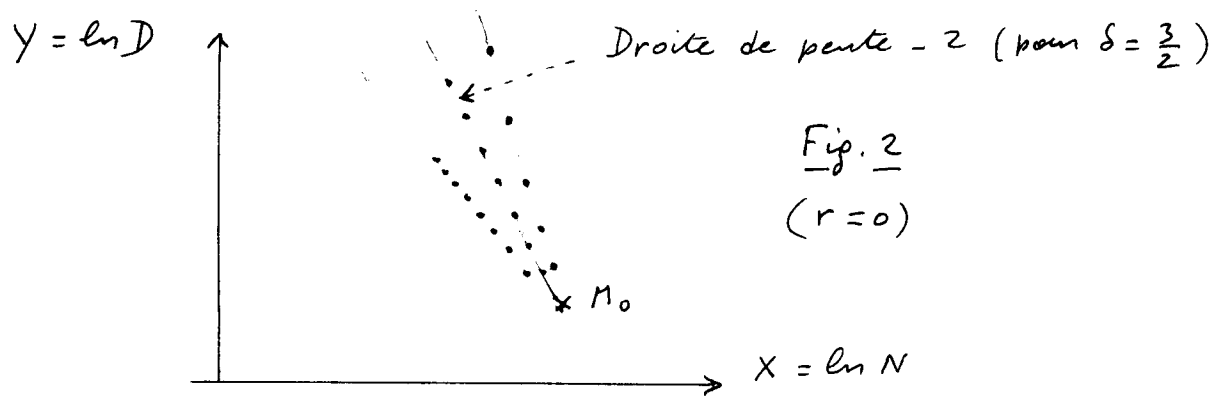 Y = ln D
Droite de pente - 2 (pour δ = 3/2)
Fig. 2
(r = 0)
M₀
X = ln N